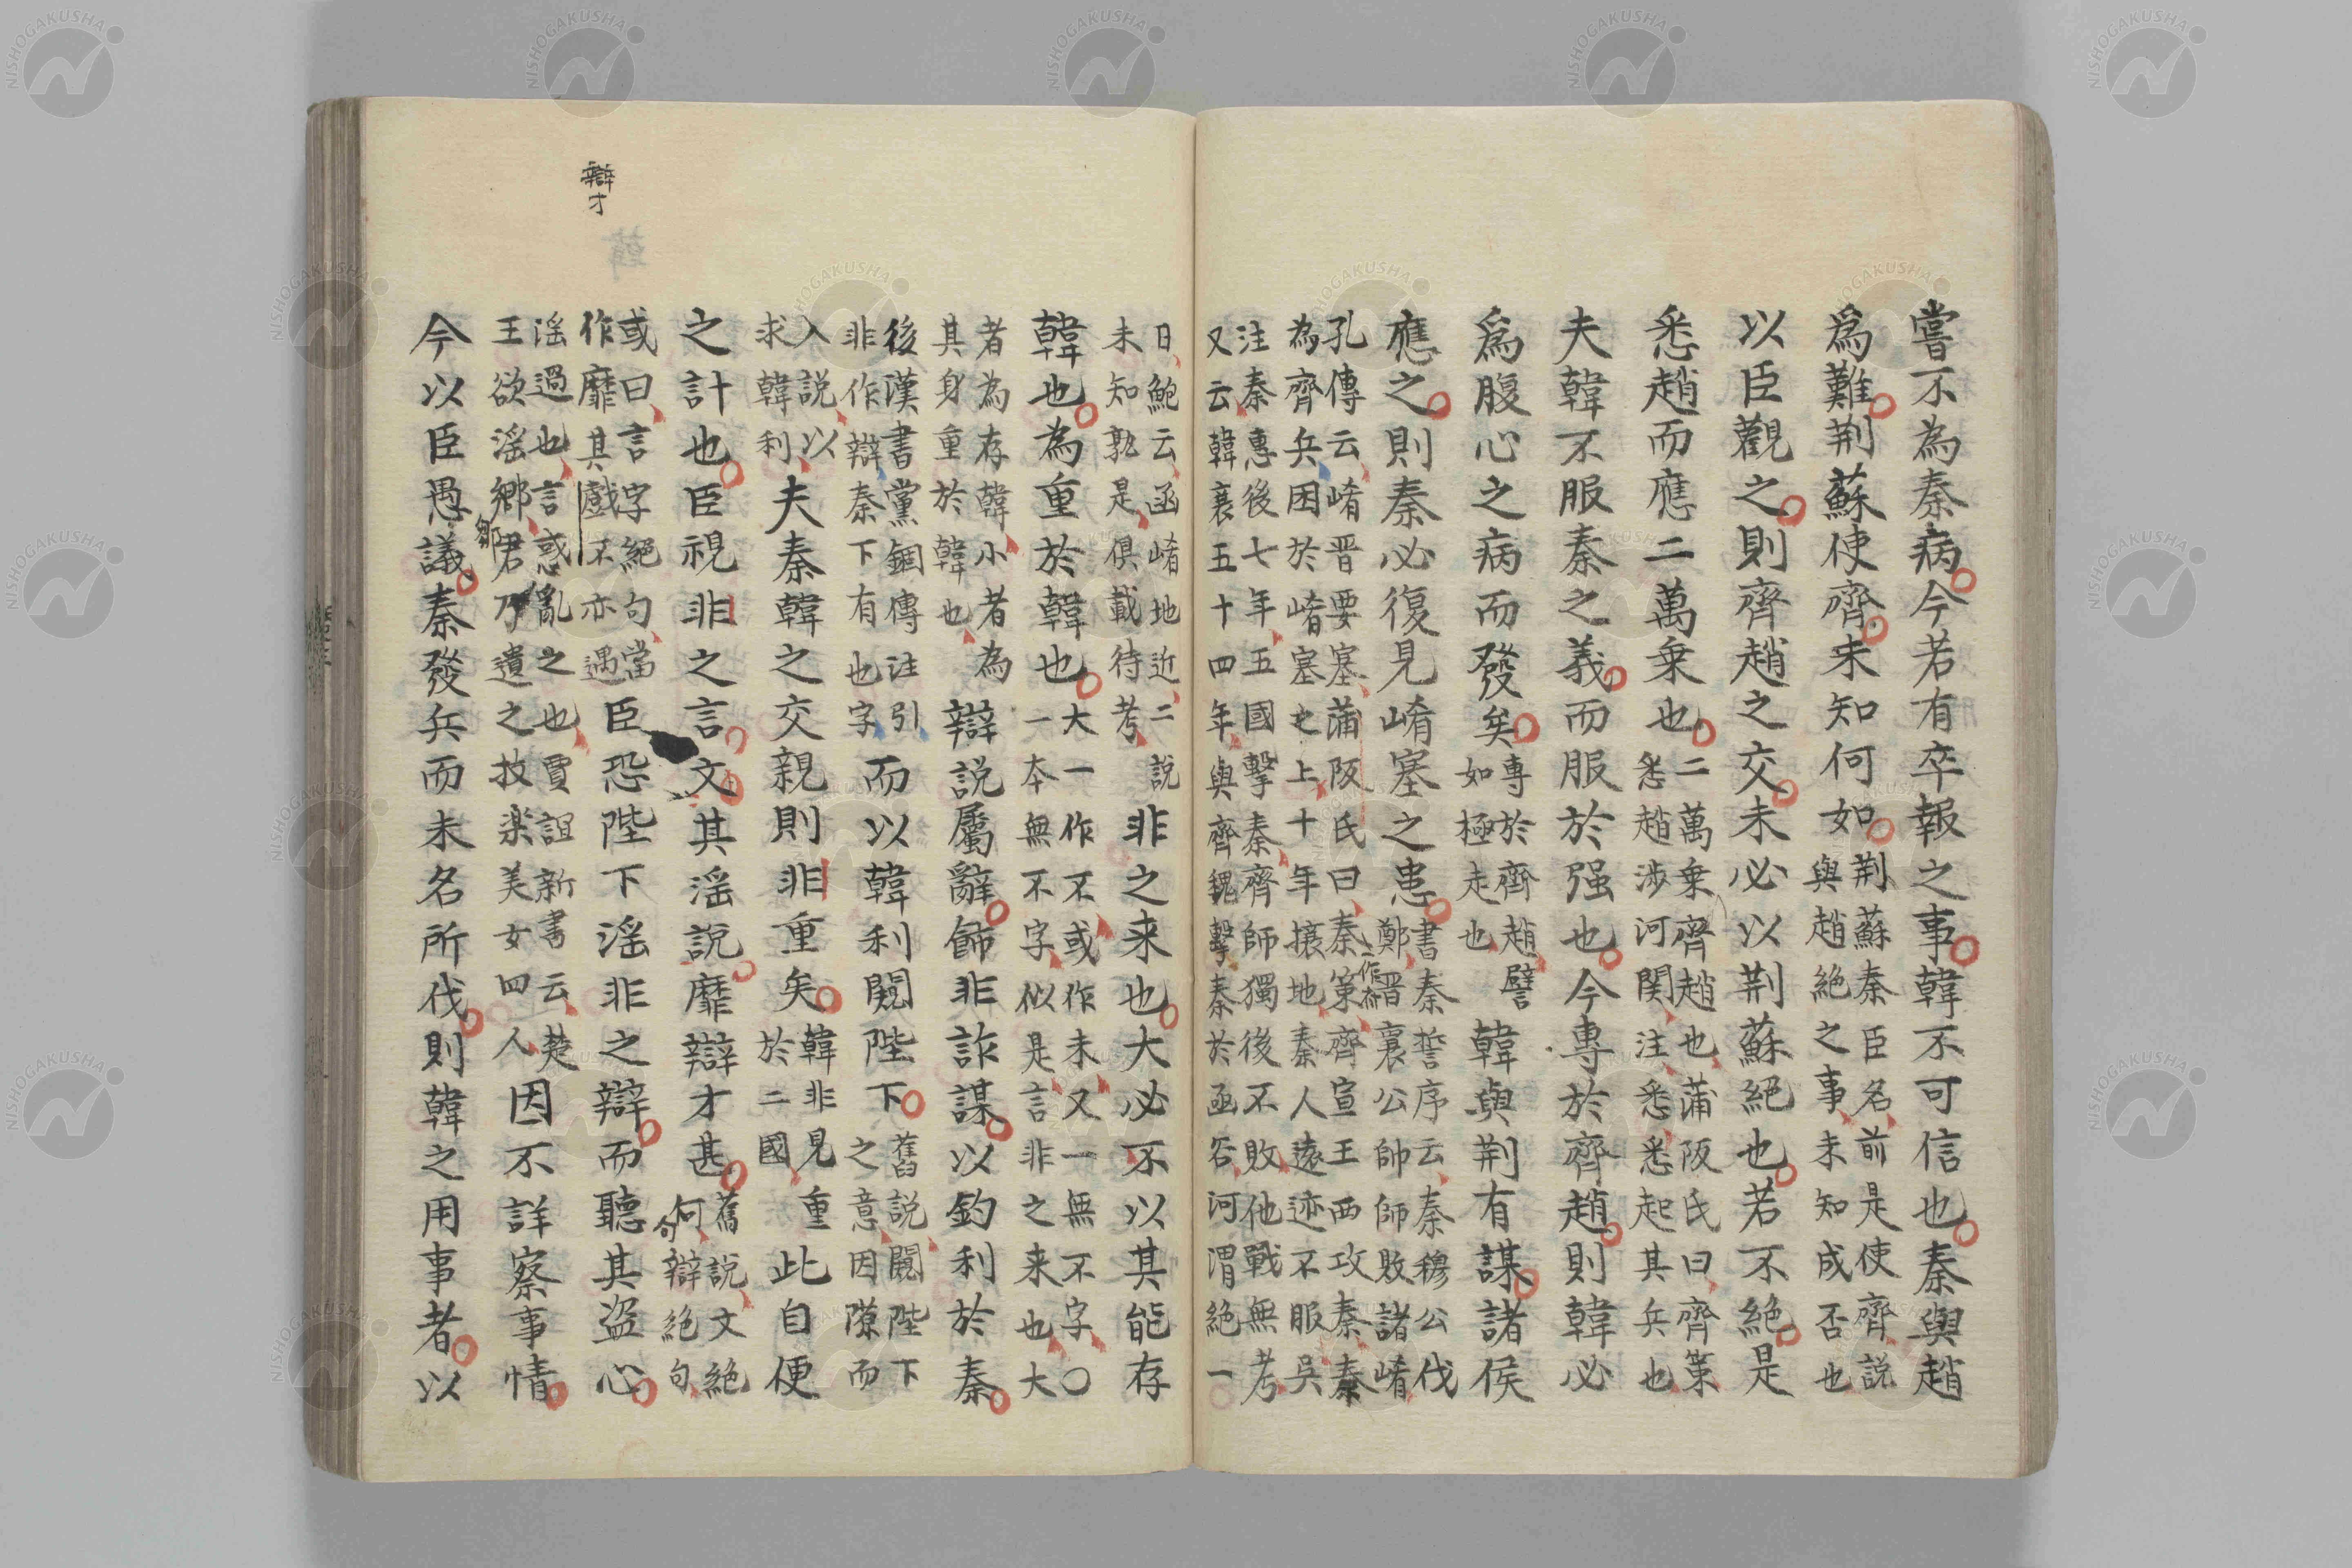 嘗不為秦病今若有卒報之事韓不可信也秦與趙
爲難荆蘇使齊未知何如荆蘇秦臣名前是使齊説
與趙絕之事未知成否也
以臣觀之則齊趙之交未必以荆蘇絕也若不絕是
悉趙而應二萬乗也二萬乗齊趙也蒲阪氏曰齊策
悉趙涉河関注悉悉起其兵也
夫韓不服秦之義而服於强也今專於齊趙則韓必
爲腹心之病而發矣專於齊趙譬
如極走也
韓與荆有謀諸侯
應之則秦必復見崤塞之患書秦誓序云秦穆公伐
鄭晋襄公帥師敗諸崤
孔傳云崤晋要塞蒲阪氏曰秦第齊宣王西攻秦秦
一作為
為齊兵困於崤塞之上十年攘地秦人遠迹不服吳
注秦惠後七年五國擊秦齊師獨後不敗他戰無考
又云韓襄五十四年與齊魏擊秦於函谷河渭絕一
日鮑云函崤地近二説
未知孰是俱載待考
非之来也大必不以其能存
韓也為重於韓也大一作不或作未又一無不字〇
一本無不字似是言非之来也大
者為存韓小者為
其身重於韓也
辯説屬辭飾非詐謀以釣利於秦
後漢書黨錮傳注引
非作辯秦下有也字
而以韓利闚陛下舊説闚陛下
之意因隙而
入説以
求韓利
夫秦韓之交親則非重矣韓非見
於二國
重此自便
之計也臣視非之言文其淫説靡辯才甚舊説文絕
何辯絕句
句
辯才
或曰言字絕句當
作靡其戲不亦遇
臣恐陛下淫非之辯而聽其盜心
淫過也言惑亂之也賈誼新書云楚
王欲淫鄉君乃遺之技楽美女四人
鄒
因不詳察事情
今以臣愚議秦發兵而未名所伐則韓之用事者以